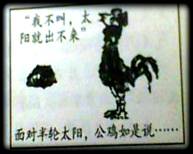 “我不叫，太
阳就出不来”
面对半轮太阳，公鸡如是说……